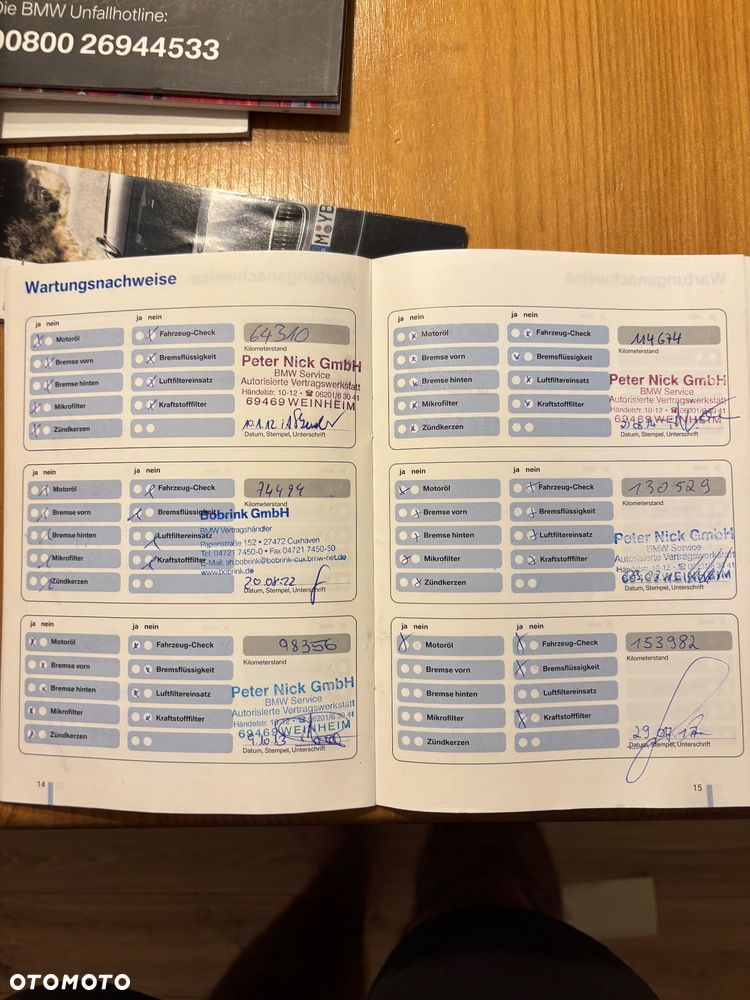 Die BMW Unfallhotline:
00800 26944533
M·YB
Wartungsnachweise
ja nein
ja nein
Motoröl
Fahrzeug-Check
64310
Kilometerstand
Bremse vorn
Bremsflüssigkeit
Peter Nick GmbH
BMW Service
Bremse hinten
Luftfiltereinsatz
Autorisierte Vertragswerkstatt
Händelstr. 10-12 · ☎ 06201/6 30 41
Mikrofilter
Kraftstofffilter
69469 WEINHEIM
Zündkerzen
10.1.12
Datum, Stempel, Unterschrift
ja nein
ja nein
Motoröl
Fahrzeug-Check
74494
Kilometerstand
Bremse vorn
Bremsflüssigkeit
Bobrink GmbH
BMW Vertragshändler
Bremse hinten
Luftfiltereinsatz
Papenstraße 152 • 27472 Cuxhaven
Tel. 04721 7450-0 • Fax 04721 7450-50
Mikrofilter
Kraftstofffilter
E-Mail: ah.bobrink@bobrink-cux.bmw-net.de
www.bobrink.de
Zündkerzen
20.08.22
Datum, Stempel, Unterschrift
ja nein
ja nein
Motoröl
Fahrzeug-Check
98356
Kilometerstand
Bremse vorn
Bremsflüssigkeit
Peter Nick GmbH
BMW Service
Bremse hinten
Luftfiltereinsatz
Autorisierte Vertragswerkstatt
Händelstr. 10-12 · ☎ 06201/6 30 41
Mikrofilter
Kraftstofffilter
69469 WEINHEIM
Zündkerzen
Datum, Stempel, Unterschrift
14
ja nein
ja nein
Motoröl
Fahrzeug-Check
114674
Kilometerstand
Bremse vorn
Bremsflüssigkeit
Peter Nick GmbH
BMW Service
Bremse hinten
Luftfiltereinsatz
Autorisierte Vertragswerkstatt
Händelstr. 10-12 · ☎ 06201/6 30 41
Mikrofilter
Kraftstofffilter
69469 WEINHEIM
Zündkerzen
Datum, Stempel, Unterschrift
ja nein
ja nein
Motoröl
Fahrzeug-Check
130529
Kilometerstand
Bremse vorn
Bremsflüssigkeit
Peter Nick GmbH
BMW Service
Bremse hinten
Luftfiltereinsatz
Autorisierte Vertragswerkstatt
Händelstr. 10-12 · ☎ 06201/6 30 41
Mikrofilter
Kraftstofffilter
WEINHEIM
Zündkerzen
Datum, Stempel, Unterschrift
ja nein
ja nein
Motoröl
Fahrzeug-Check
153982
Kilometerstand
Bremse vorn
Bremsflüssigkeit
Bremse hinten
Luftfiltereinsatz
Mikrofilter
Kraftstofffilter
Zündkerzen
29.07.17
Datum, Stempel, Unterschrift
15
OTOMOTO